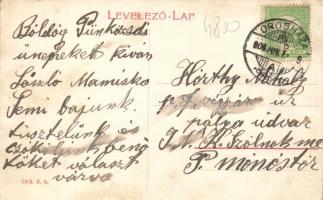 LEVELEZŐ-LAP
4800
OROSHÁZA
Boldog Pünkösdi
ünnepeket kiván
László Mamisko
Semi bajunk.
Tisztelünk és
csókolunk benn
őket választ
várva
Horthy Mihály
úr
pálya udvar
J. N. K. Szolnok me
P. monostor